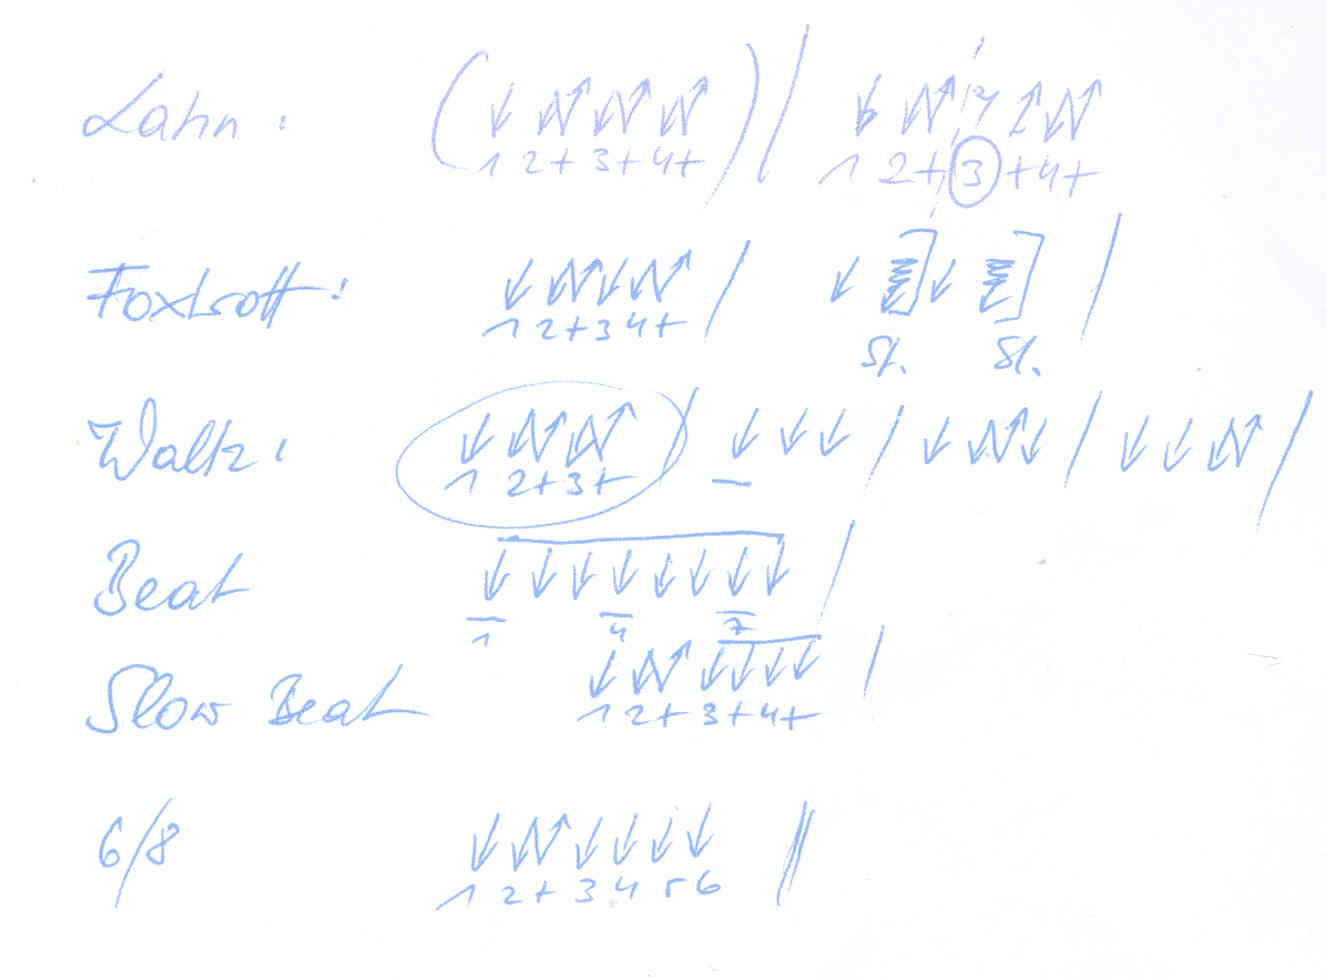 Lahn :
1 2+ 3+ 4+ 1 2+ 3 +4+
Foxtrott :
1 2+ 3 4+ St. St.
Waltz :
1 2+ 3+
Beat
1 4 7
Slow Beat
1 2+ 3+4+
6/8
1 2+ 3 4 5 6